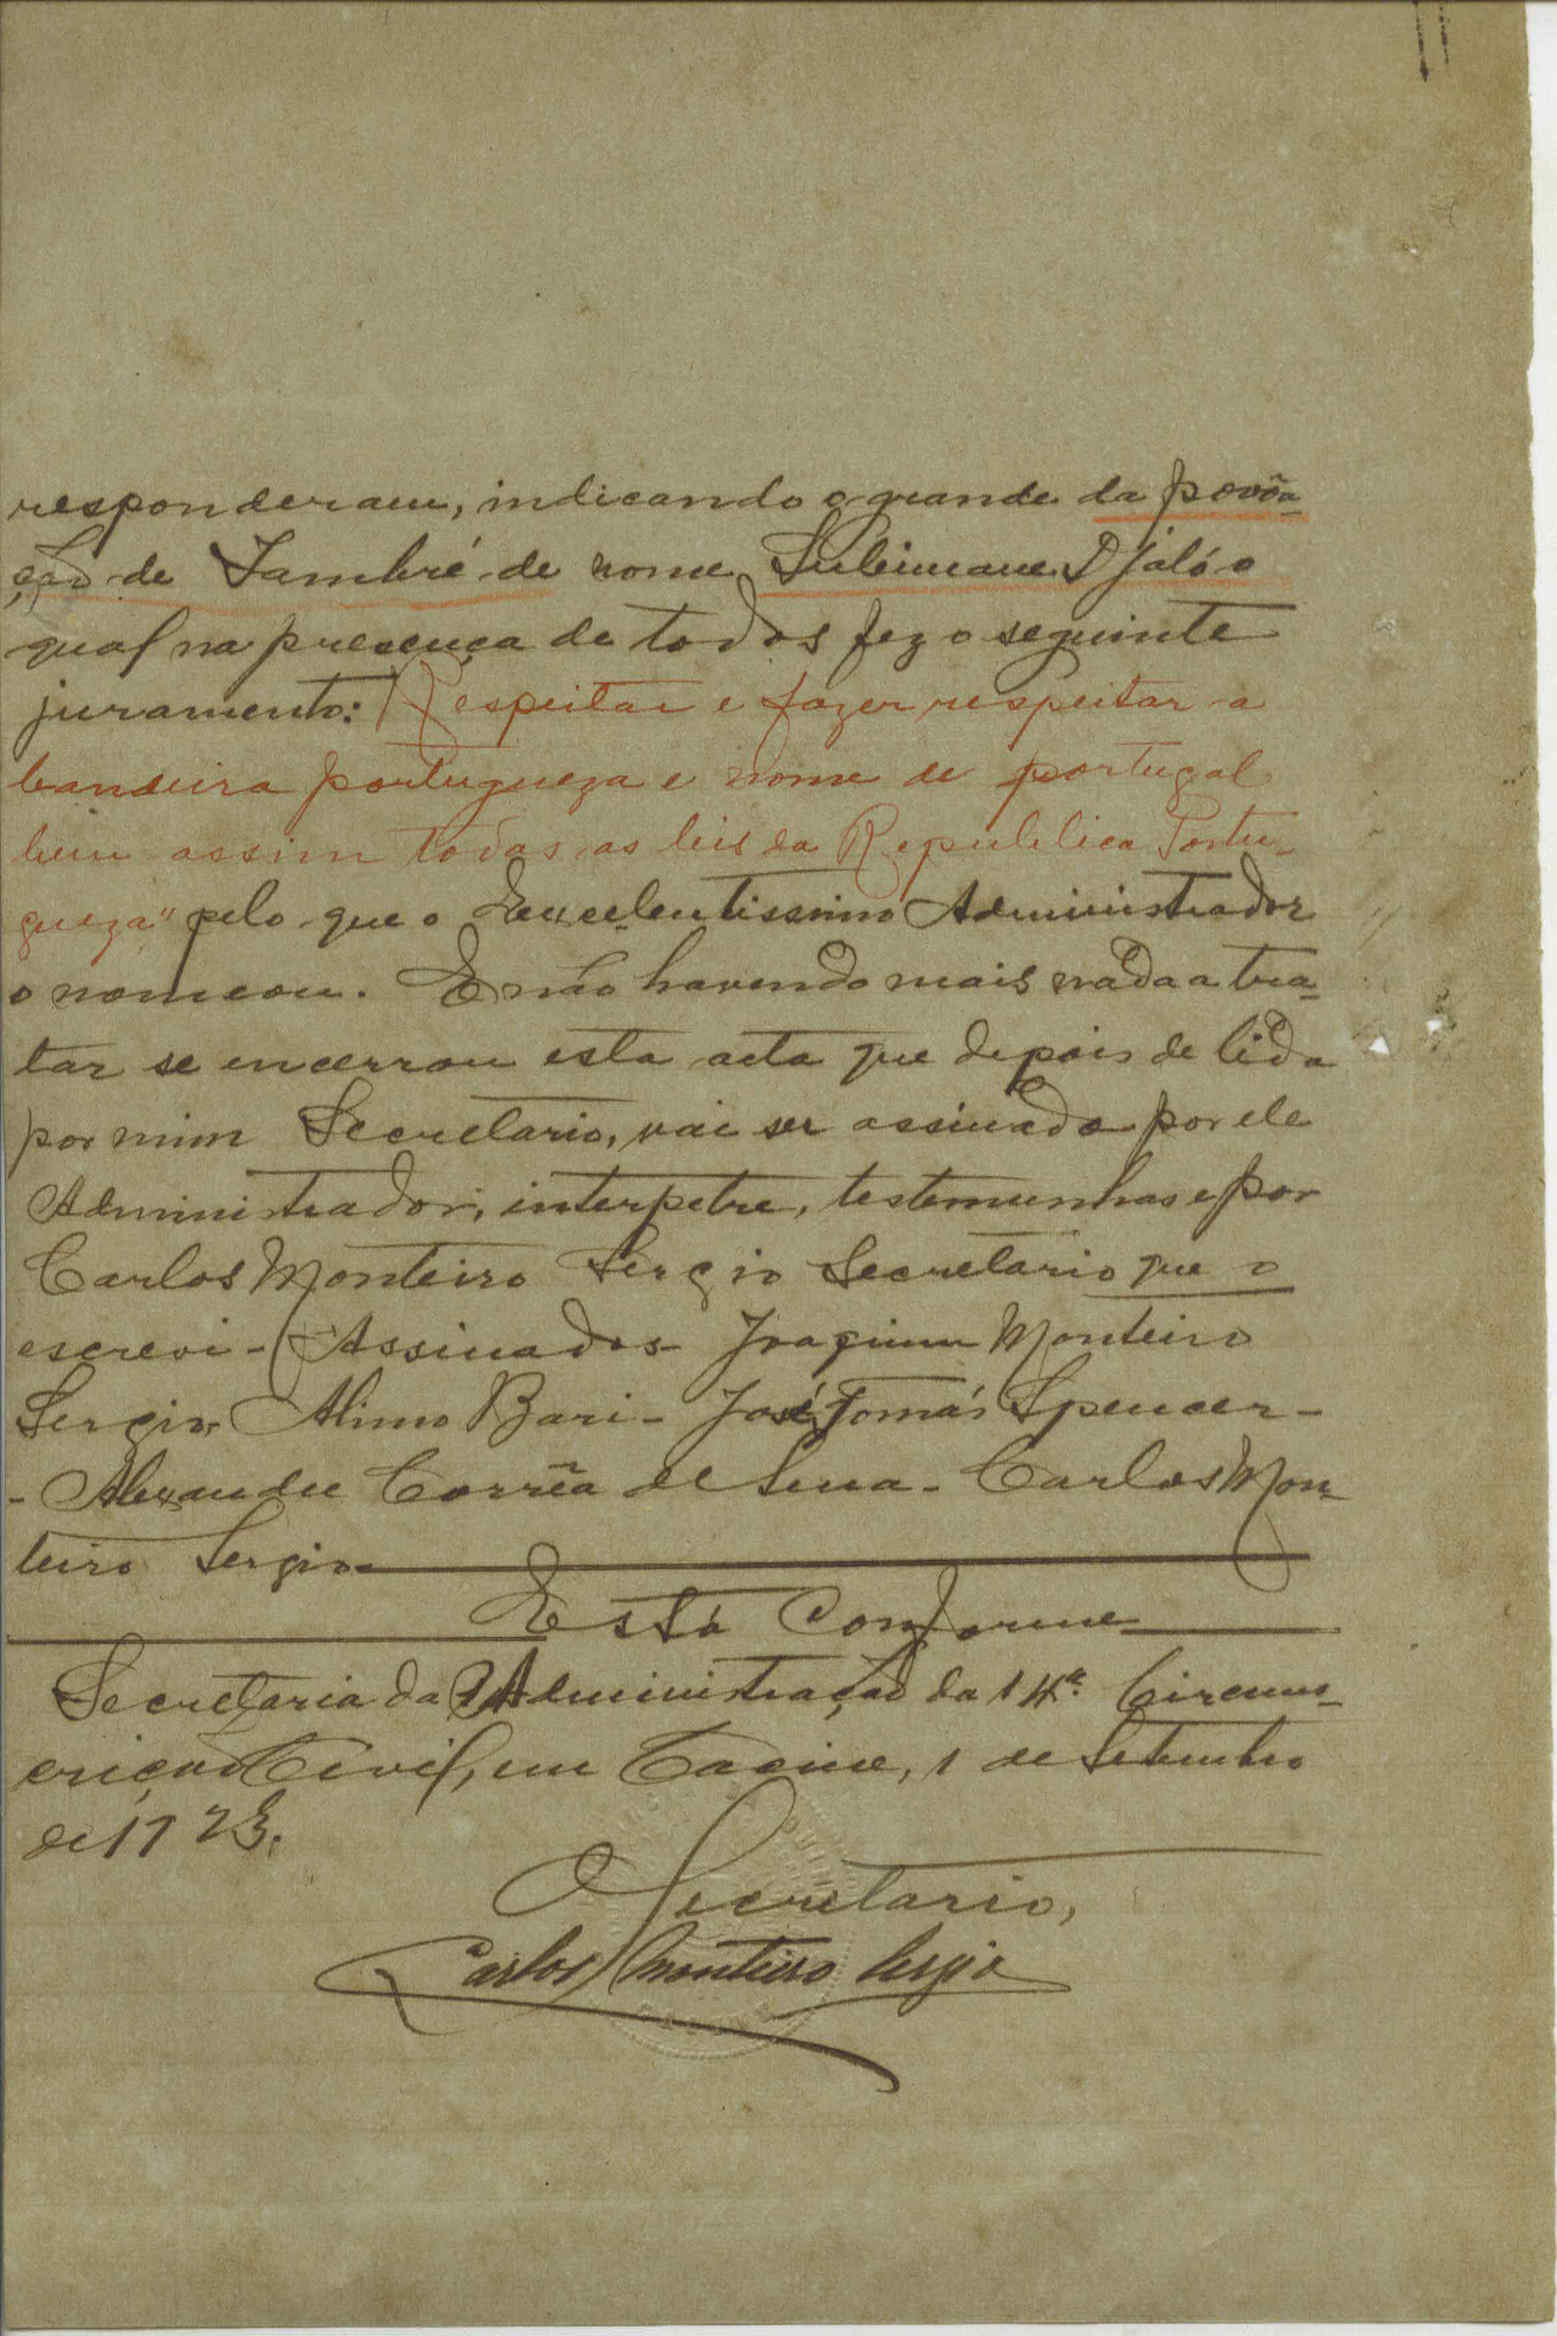 responderam, indicando o grande da povôa-
ção de Tambré de nome Suleimane Djaló o
qual na presença de todos fez o seguinte
juramento: Respeitar e fazer respeitar a
bandeira portugueza e nome de portugal
bem assim todas as leis da Republica Portu-
gueza" pelo que o Excelentissimo Administrador
o nomeou. E não havendo mais nada a tra-
tar se encerrou esta acta que depois de lida
por mim Secretario, vai ser assinada por ele
Administrador, interpetre, testemunhas e por
Carlos Monteiro Sergio Secretario que o
escrevi - Assinados - Joaquim Monteiro
Sergio, Alimo Bari - José Tomás Spencer -
- Alexandre Corrêa de Sena - Carlos Mon-
teiro Sergio
Está Conforme
Secretaria da Administração da 14ª Circuns-
crição Civil, em Cacine, 1 de Setembro
de 1923.
O Secretario,
Carlos Monteiro Sergio